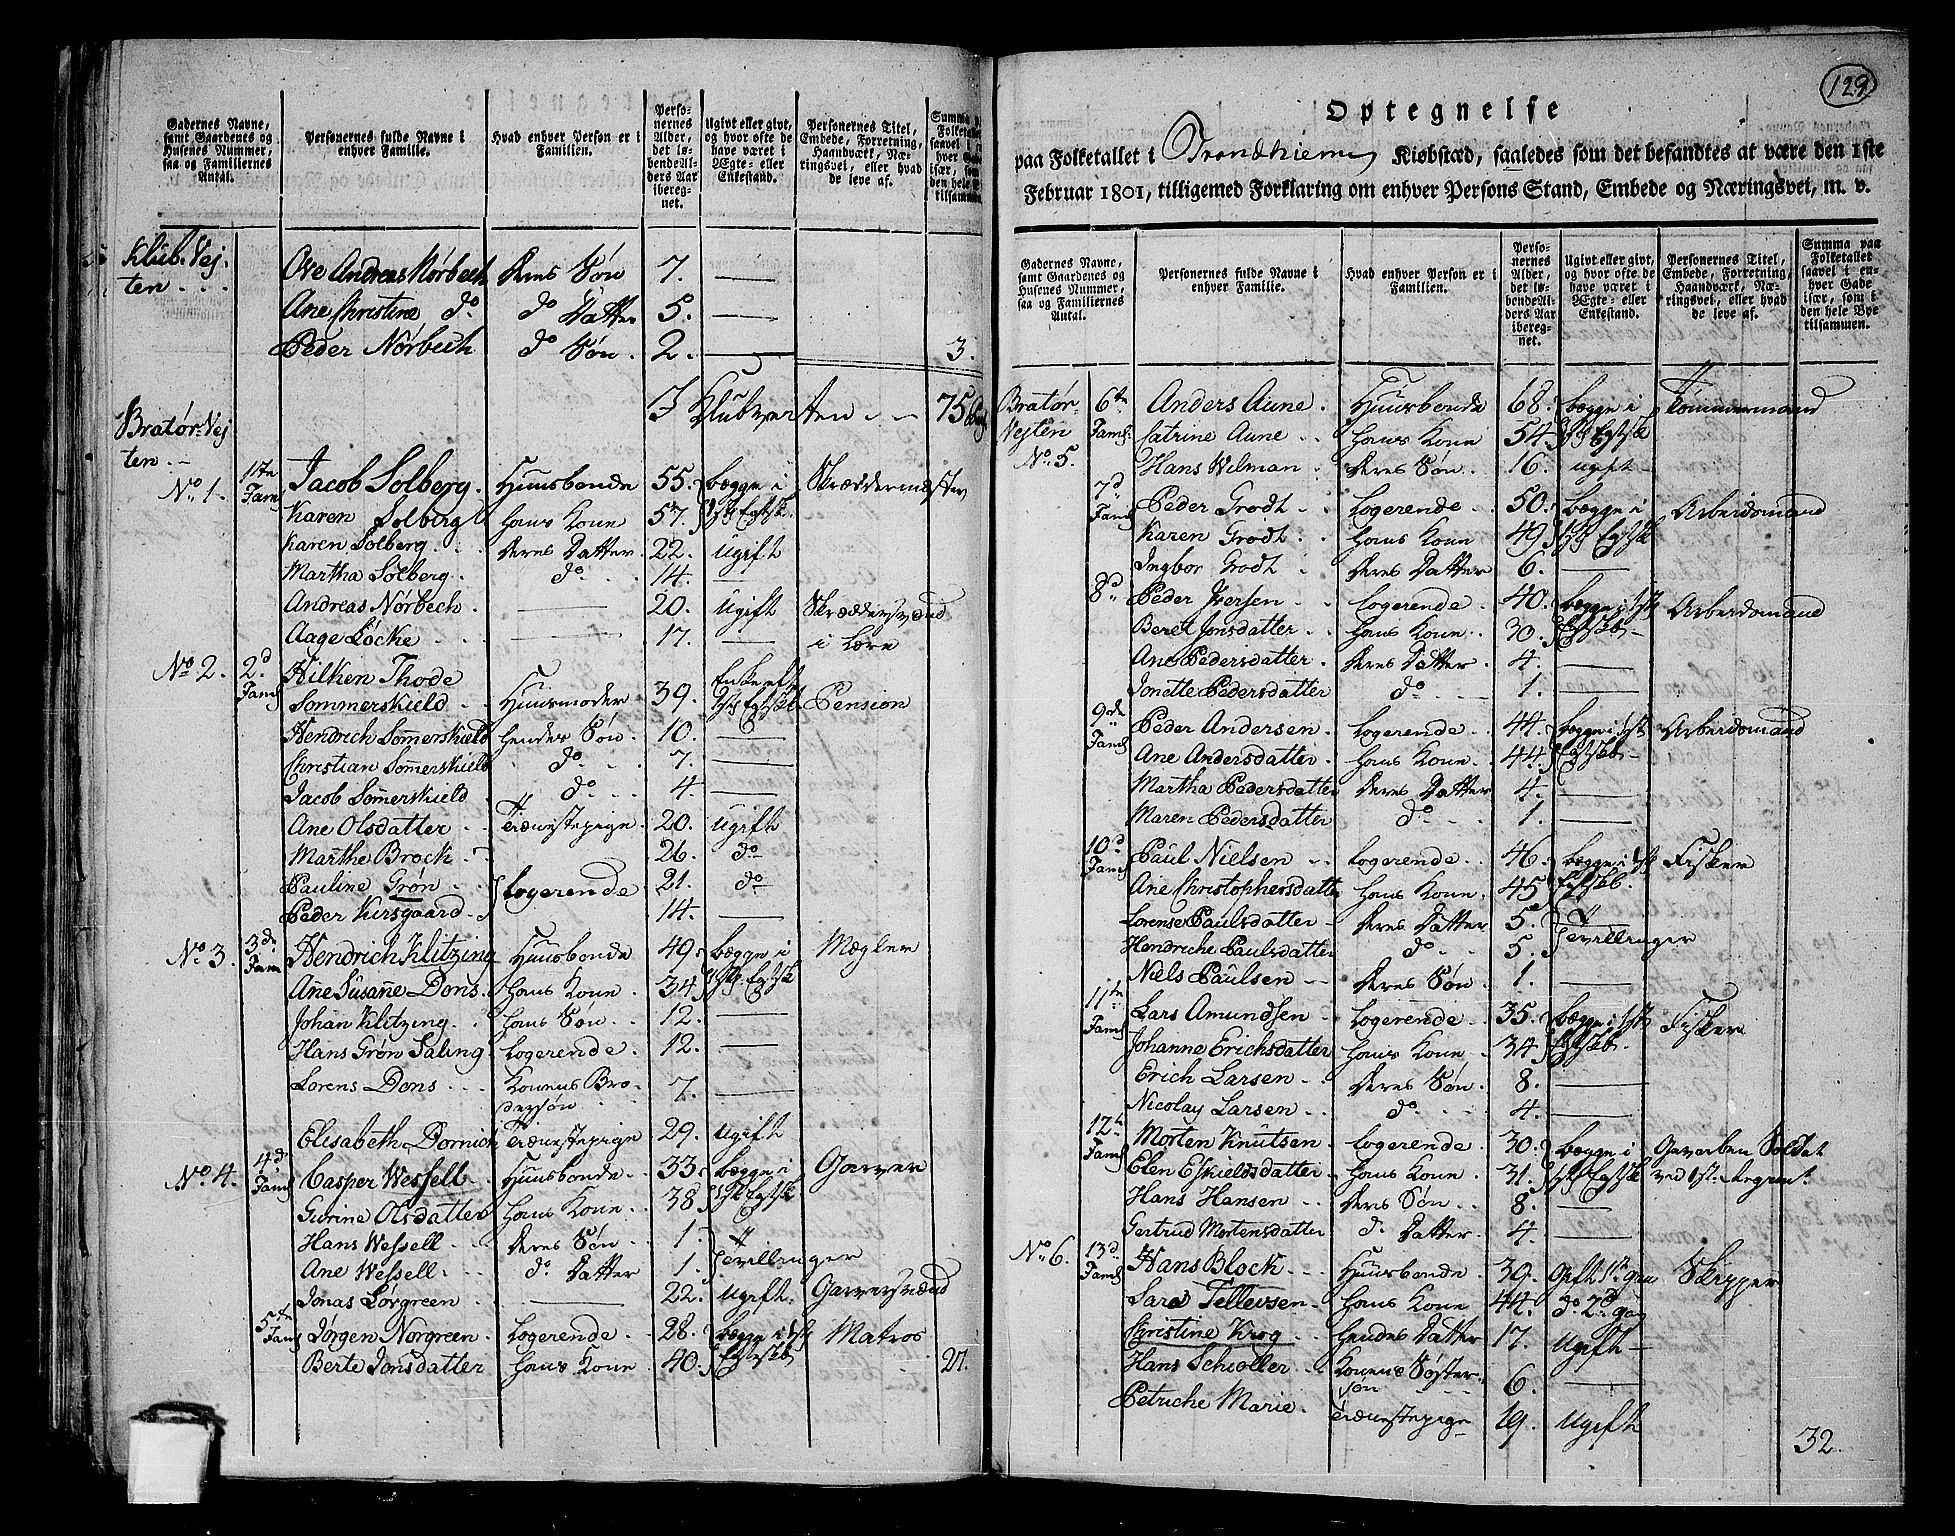 Gadernes Navne, samt Gaardenes og Husenes Nummer, saa og Familiernes Antal.
Personernes fulde Navne i enhver Familie.
Hvad enhver Person er i Familien.
Personernes Alder, det løbende Alders Aar iberegnet.
Ugivt eller givt, og hvor ofte de have været i Ægte- eller Enkestand.
Personernes Titel, Embede, Forretning, Haandværk, Næringsvei, eller hvad de leve af.
Klüb-Vejten
Ove Andreas Nørbech Deres Søn 7. —
Ane Christine do do Datter 5. —
Peder Nørbech do Søn 2. — 3.
I Klubveiten — 75
Bratør-Vejten
No 1. 1ste Fam: Jacob Solberg Huusbonde 55. begge i Skræddermæster
Karen Solberg hans Kone 57. 1st Egtsk:
Karen Solberg deres Datter 22. ugift
Martha Solberg do 14. —
Andreas Nørbech — 20. ugift Skræddersvend
Aage Løcke — 17. — i Lære
No 2. 2d Fam: Hilken Thode
Sommerskield Huusmoder 39. Enke eft 1st Egtsk: Pension
Hendrich Somerskield hendes Søn 10. —
Christian Somerskield do 7. —
Jacob Somerskield do 4. —
Ane Olsdatter Tienestepige 20. ugift
Marthe Brock 26. do
Pauline Grøn logerende 21. do
Peder Kirsgaard 14. —
No 3. 3de Fam Hendrich Klitzing Huusbonde 49. begge i Mægler
Ane Susane Dons hans Kone 34. 1st Egtsk
Johan Klitzing hans Søn 12. —
Hans Grøn Saling logerende 12. —
Lorens Dons Konens Brodersøn 7. —
Elisabeth Dornich Tienestepige 29. ugift
No 4. 4de Fam: Casper Wessell Huusbonde 33. begge i Garver
Gurine Olsdatter hans Kone 38. 1st Egtsk
Hans Wessell deres Søn 1.
Ane Wessell do Datter 1. Tvillinger
Jonas Lørgreen — 22. ugift. Garversvend
5te Fam: Jørgen Norgreen logerende 28. begge i 1st Matros
Berte Jonsdatter hans Kone 40. Egtskb 27.
129
Optegnelse
paa Folketallet i Trondhiems Kiøbstæd, saaledes som det befandtes at være den 1ste
Februar 1801, tilligemed Forklaring om enhver Persons Stand, Embede og Næringsvei, m. v.
Gadernes Navne, samt Gaardenes og Husenes Nummer, saa og Familiernes Antal.
Personernes fulde Navne i enhver Familie.
Hvad enhver Person er i Familien.
Personernes Alder, det løbende Alders Aar iberegnet.
Ugivt eller givt, og hvor ofte de have været i Ægte- eller Enkestand.
Personernes Titel, Embede, Forretning, Haandværk, Næringsvei, eller hvad de leve af.
Summa paa Folketallet saavel i enhver Gade især, som i den hele Bye tilsammen.
Bratør-Vejten No 5. 6te Fam: Anders Aune Huusbonde 68. begge i Tømmermand
Catrine Aune hans Kone 54. 1st Egtsk
Hans Wilman deres Søn 16. ugift
7d Fam: Peder Grodt logerende 50. begge i Arbeidsmand
Karen Grodt hans Kone 49. 1st Egtsk
Ingbor Grodt deres Datter 6. —
8d Peder Iversen logerende 40. begge i 1st Arbeidsmand
Beret Jonsdatter hans Kone 30. Egtskb
Ane Pedersdatter deres Datter 4. —
Jonette Pedersdatter do 1. —
9de Fam: Peder Andersen logerende 44. begge i 1st Arbeidsmand
Ane Andersdatter hans Kone 44. Egtskb
Martha Pedersdatter deres Datter 4. —
Maren Pedersdatter do 1. —
10d Fam: Paul Nielsen logerende 46. begge i 1st Fisker
Ane Christophersdatter hans Kone 45. Egtskb.
Lorense Paulsdatter deres Datter 5.
Hendriche Paulsdatter do 5. Tvillinger
Niels Paulsen deres Søn 1. —
11te Fam: Lars Amundsen logerende 35. begge i 1st Fisker
Johanne Erichsdatter hans Kone 34. Egtskb.
Erich Larsen deres Søn 8. —
Nicolay Larsen do 4. —
12te Fam: Morten Knutsen logerende 30. begge i Gevorben Soldat
Elen Eskieldsdatter hans Kone 31. 1st Egtsk ved 1st Regimt
Hans Hansen deres Søn 8. —
Gertrud Mortensdatter do Datter 4. —
No 6. 13d Fam: Hans Block Huusbonde 39. Gift 1st gang Skipper
Sara Tellevsen hans Kone 44. do 2d gang
Christine Krog hendes Datter 17. ugift
Hans Schiøller Konens Søstersøn 6. —
Petriche Marie Tienestepige 19. ugift
32.